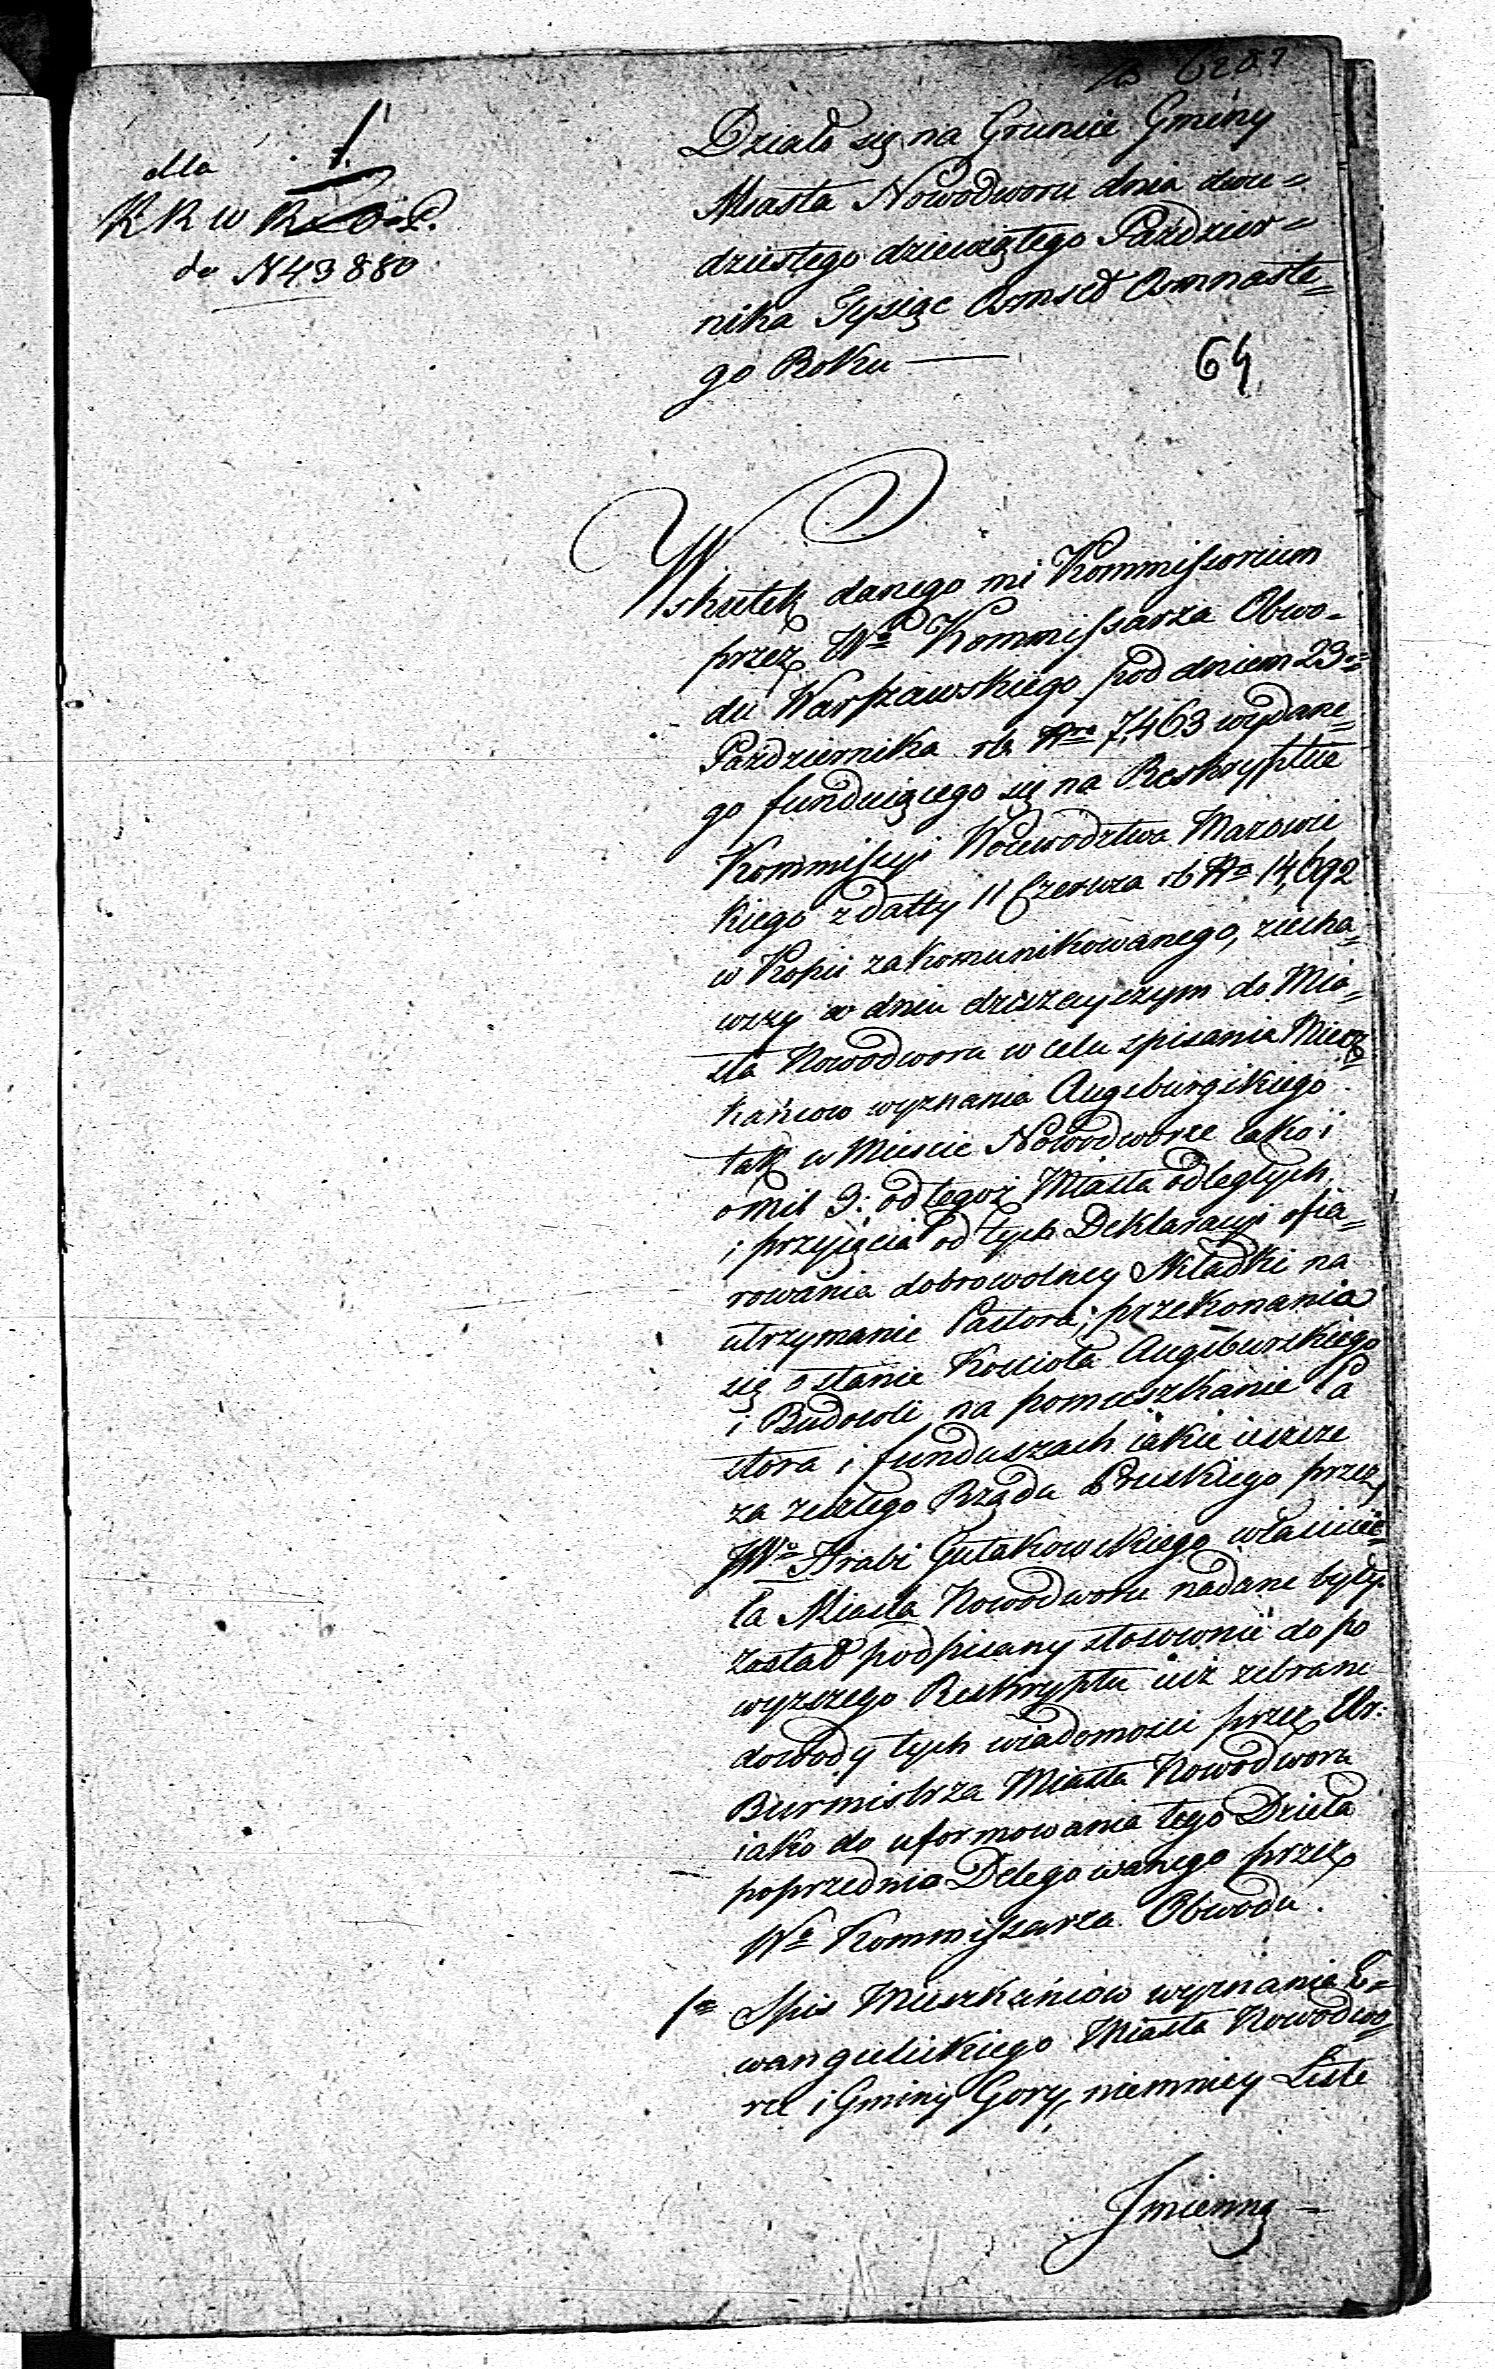 6287
dla
K R W R
do N 43880
Działo się na Gruncie Gminy
Miasta Nowodworu dnia dwu=
dziestego dziewiątego Paździer=
nika Tysiąc Osmset Osmnaste=
go Roku —
64
Wskutek danego mi Kommissorium
przez Wº Kommissarza Obwo-
du Warszawskiego pod dniem 23=
Października rb Nro 7,463 wydane=
go funduiącego się na Reskryptue
Kommissyi Woiewodztwa Mazowie
kiego z datty 11 Czerwca rb Nº 14,692
w Kopii zakomunikowanego, ziecha=
wszy w dniu dzisieyszym do Mia=
sta Nowodworu w celu spisania Miesz=
kańcow wyznania Augsburgskiego
tak w Miescie Nowodworze iako i
o mil 3: od tegoż Miasta odległych,
i przyięcia od tych Deklaracyi ofia=
rowania dobrowolney Składki na
utrzymanie Pastora; przekonania
się o stanie Kościoła Augsburskiego
i Budowli na pomieszkanie Pa
stora i funduszach iakie ieszcze
za zeszłego Rządu Pruskiego przez
JWº Hrabi Gutakowskiego właścicie=
la Miasta Nowodworu nadane były.
Zastał podpisany stosownie do po
wyzszego Reskryptu iuż zebrane
dowody tych wiadomosci przez Ur:
Burmistrza Miasta Nowodworu
iako do uformowania tego Dzieła
poprzednio Delegowanego przez
Wº Kommissarza Obwodu.
1º Spis Mieszkańców wyznania E=
wangelickiego Miasta Nowodwo=
ru i Gminy Gory, niemniey Liste
Jmienną —